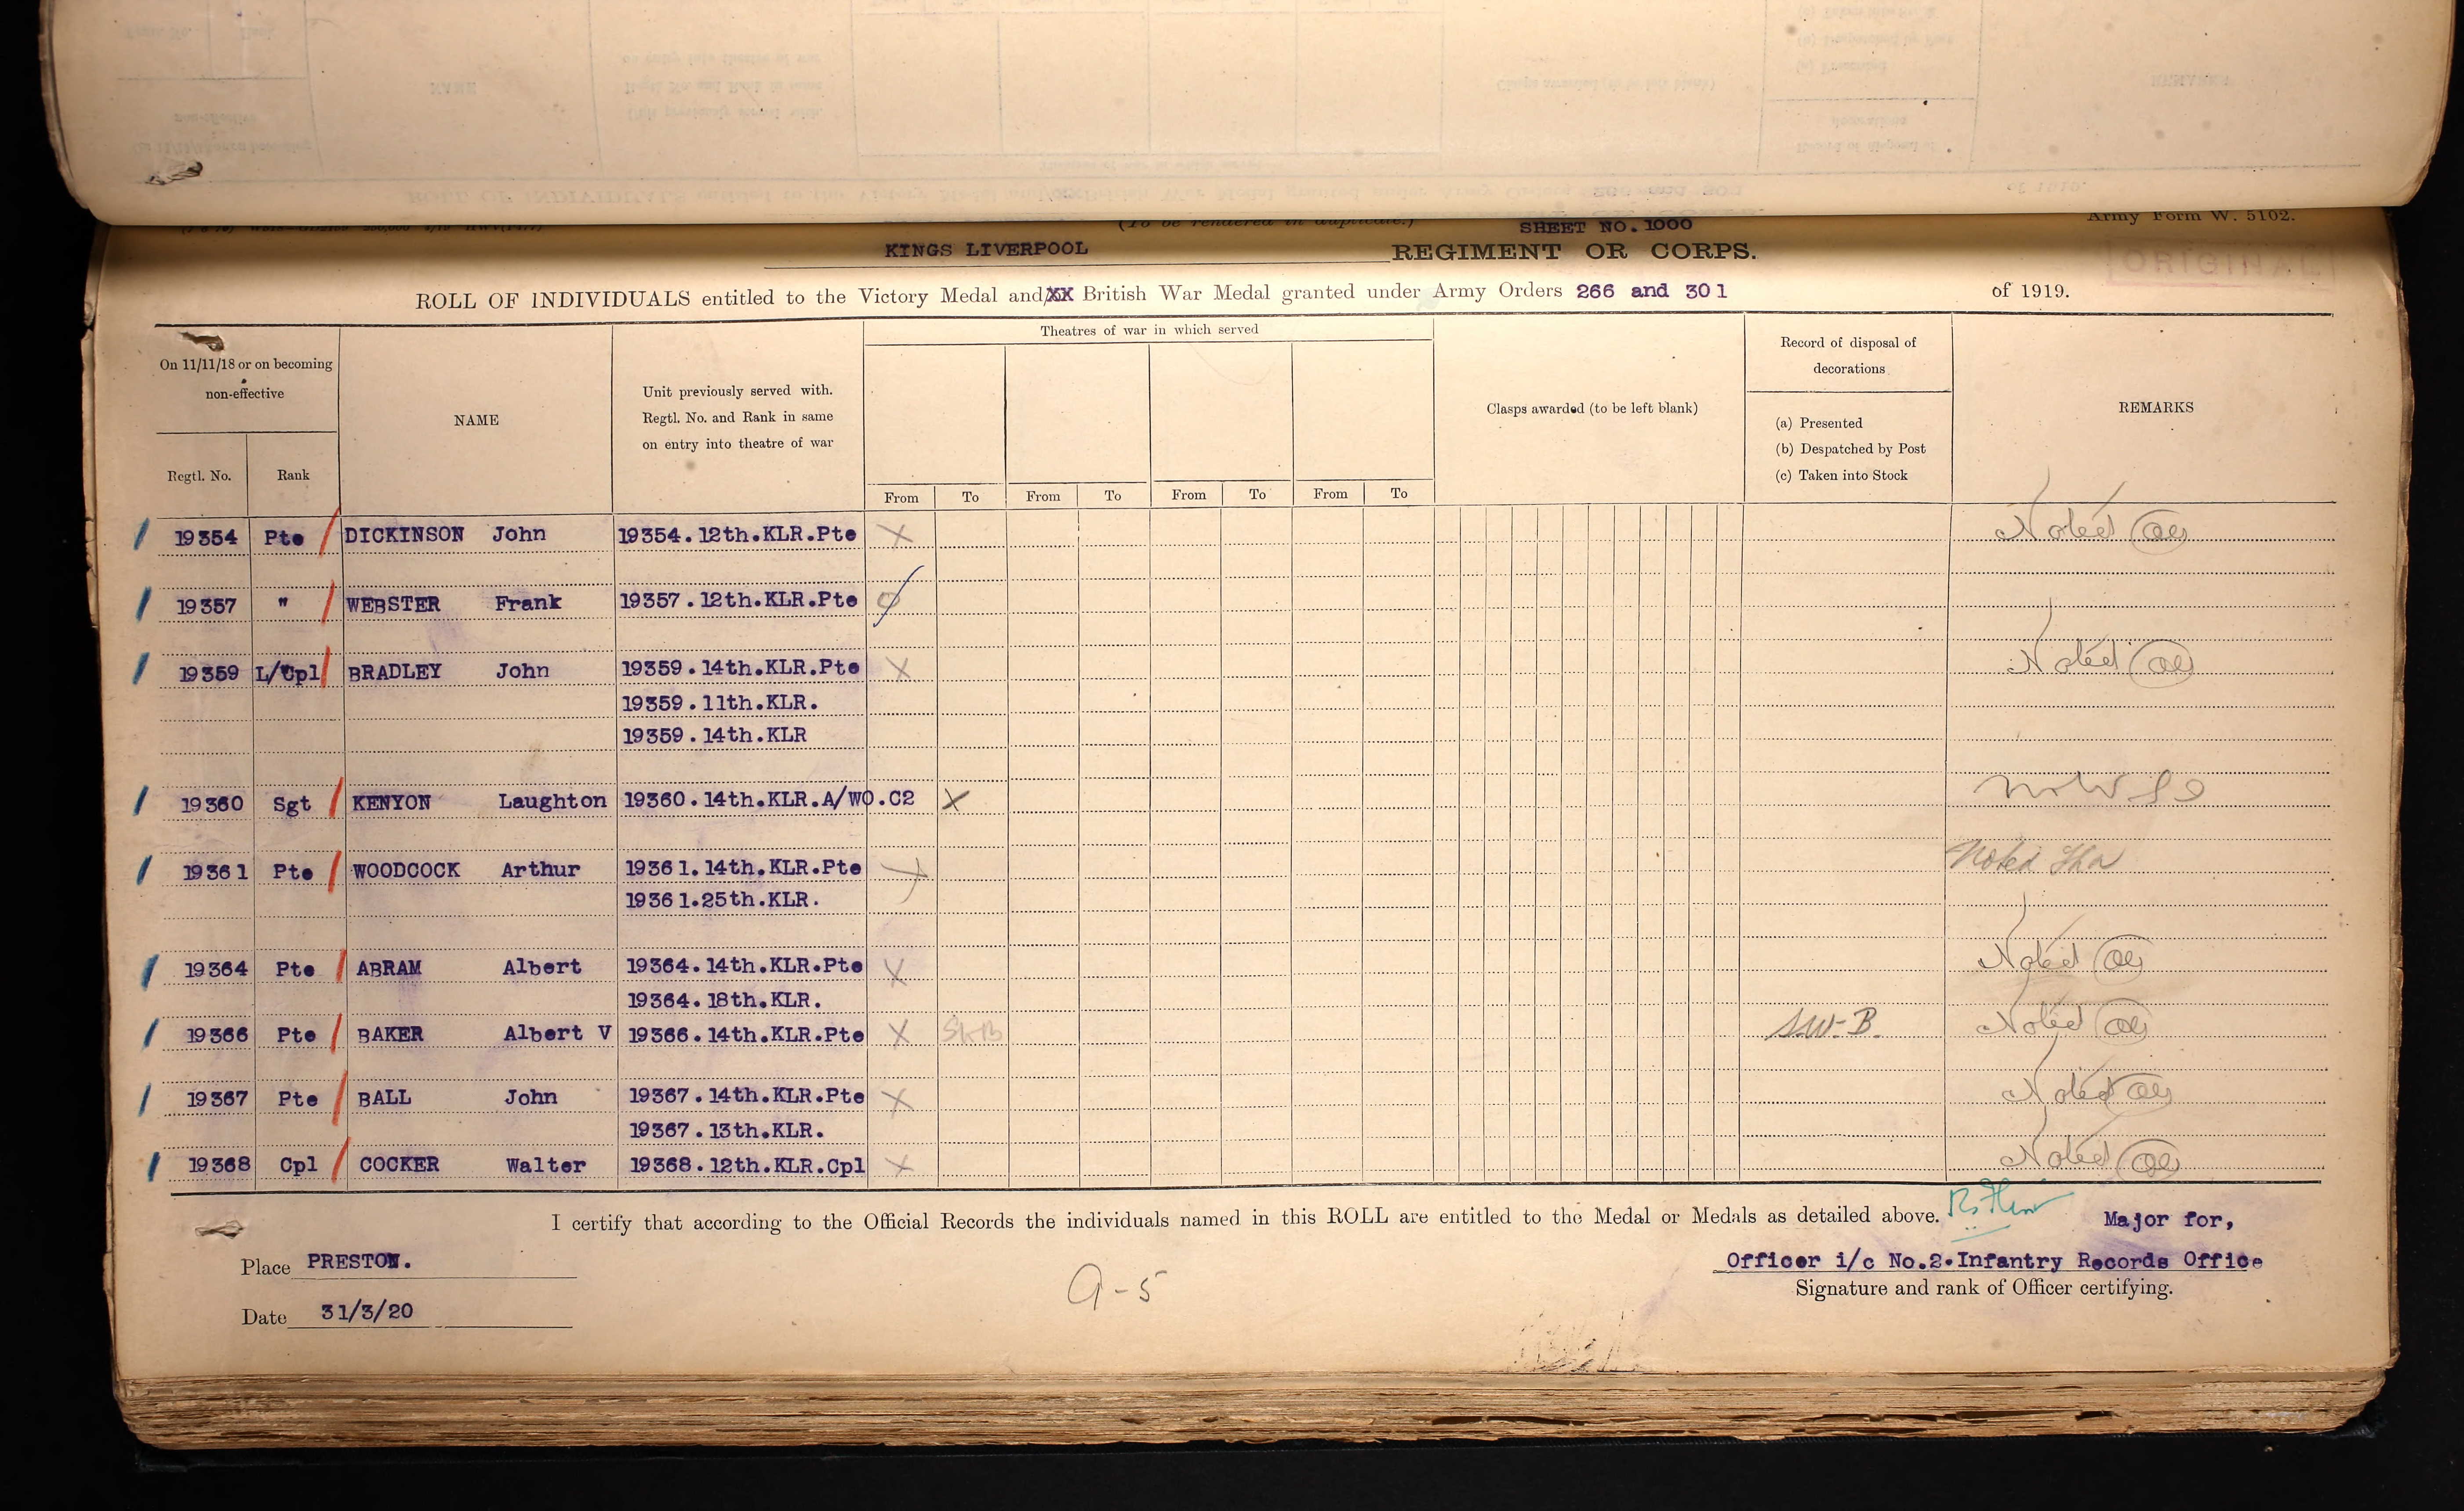 (To be rendered in duplicate.)
SHEET NO. 1000
Army Form W. 5102.
KINGS LIVERPOOL REGIMENT OR CORPS.
ORIGINAL
ROLL OF INDIVIDUALS entitled to the Victory Medal and/XX British War Medal granted under Army Orders 266 and 301 of 1919.
On 11/11/18 or on becoming non-effective
Regtl. No.
Rank
NAME
Unit previously served with.
Regtl. No. and Rank in same
on entry into theatre of war
Theatres of war in which served
From To From To From To From To
Clasps awarded (to be left blank)
Record of disposal of
decorations
(a) Presented
(b) Despatched by Post
(c) Taken into Stock
REMARKS
19354 Pte DICKINSON John 19354.12th.KLR.Pte X Noted
19357 " WEBSTER Frank 19357.12th.KLR.Pte
19359 L/Cpl BRADLEY John 19359.14th.KLR.Pte X Noted
19359.11th.KLR.
19359.14th.KLR
19360 Sgt KENYON Laughton 19360.14th.KLR.A/WO.C2 X
19361 Pte WOODCOCK Arthur 19361.14th.KLR.Pte X Noted
19361.25th.KLR.
19364 Pte ABRAM Albert 19364.14th.KLR.Pte X Noted
19364.18th.KLR.
19366 Pte BAKER Albert V 19366.14th.KLR.Pte X S.W.B. Noted
19367 Pte BALL John 19367.14th.KLR.Pte X Noted
19367.13th.KLR.
19368 Cpl COCKER Walter 19368.12th.KLR.Cpl X Noted
I certify that according to the Official Records the individuals named in this ROLL are entitled to the Medal or Medals as detailed above.
Major for,
Place PRESTON.
Officer i/c No.2.Infantry Records Office
Signature and rank of Officer certifying.
9-5
Date 31/3/20